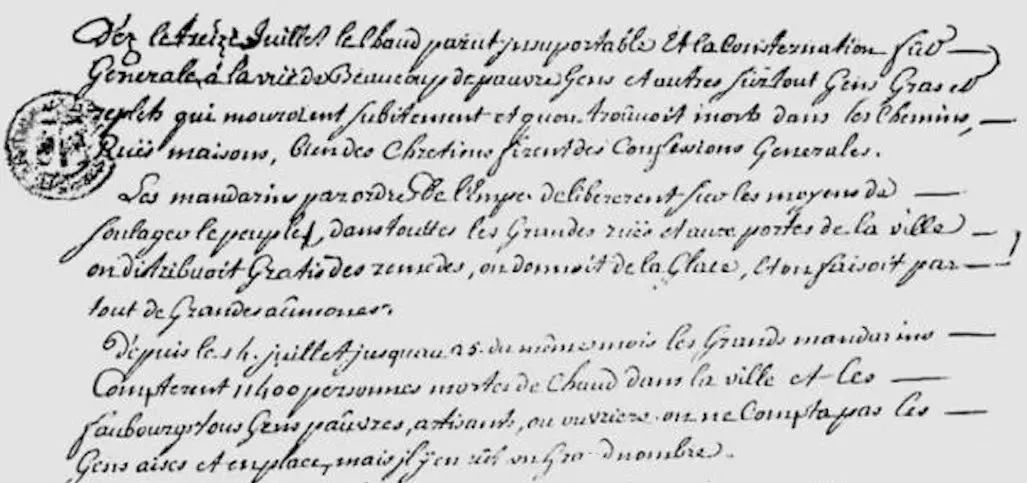 Déz le treize Juillet le Chaud parut jnsuportable Et la Consternation fut
Generale, à la vuë de Beaucoup de pauvre Gens et autres surtout Gens Gras et
replets qui mouroient subitement et quon trouvoit morts dans les Chemins,
Ruës maisons, bien des Chretiens firent des Confessions Generales.
Les mandarins par ordre de l'Emp.r delibererent sur les moyens de
soulager le peuple, dans touttes les Grandes ruës et aux portes de la ville
on distribuoit Gratis des remedes, on donnoit de la Glace, Et on faisoit par
tout de Grandes aûmones.
Dépuis le 14. juillet jusquau 25. du même mois les Grands mandarins
Compterent 11400 personnes mortes de Chaud dans la ville et les
faubourgs tous Gens paûvres, artisants, ou ouvriers. on ne Compta pas les
Gens aises et en place, mais jl y en eût un Grand nombre.